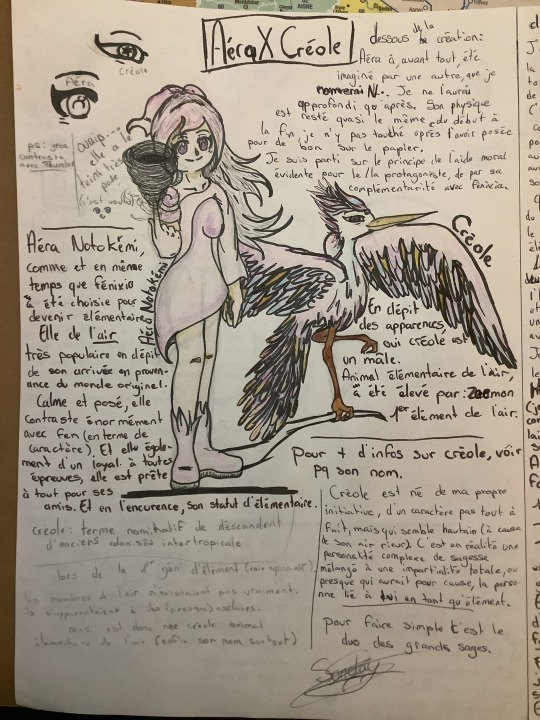 Aéra X Créole
dessous de la
création:
Aéra à, avant tout, été
imaginé par une autre, que je
nommerai N... Je ne l'aurai
approfondi qu'après. Son physique
est resté quasi le même du début à
la fin je n'y pas touché après l'avoir posée
pour de bon sur le papier.
Je suis parti sur le principe de l'aide moral
évidente pour le/la protagoniste, de par sa
complémentarité avec fénixia.
Créole
Aéra
ouaip...
elle a
teint très
pade
(c'est voulu)
ps: gros
contraste
avec
Aéra Notokémi
Créole
Aéra Notokémi,
comme et en même
temps que fénixia
à été choisie pour
devenir élémentaire.
Elle de l'air
très populaire en dépit
de son arrivée en proven-
ance du monde originel.
Calme et posé, elle
contraste énormément
avec Fen (en terme de
caractère). Et elle égale-
ment d'un loyal à toutes
épreuves, elle est prête
à tout pour ses
amis. Et en l'encurence, son statut d'élémentaire.
En dépit
des apparences,
oui créole est
un mâle.
Animal élémentaire de l'air,
à été élevé par: Zaemon
1er élément de l'air.
Pour + d'infos sur créole, voir
pq son nom.
créole: terme nominatif de descendant
d'anciens colonisés intertropicale
lors de la 1er gén d'élément
les membres de l'air n'existaient pas vraiment.
ils s'apparentaient à des (presque) esclaves.
ainsi est donc née créole animal
élémentaire de l'air (enfin son nom surtout)
Créole est né de ma propre
initiative, d'un caractère pas tout à
fait, mais qui semble hautain (à cause
de son air rieur). C'est en réalité une
personalité complexe de sagesse
mélangé à une impartialité totale, ou
presque qui aurait pour cause, la perso-
nne lié à lui en tant qu'élément.
pour faire simple c'est le
duo des grands sages.